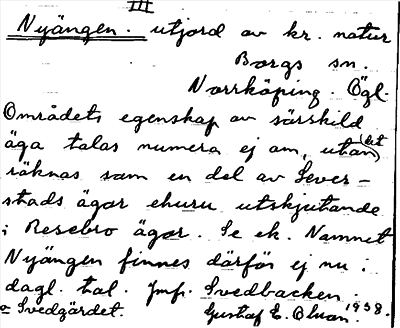 III
Nyängen. utjord av kr. natur
Borgs sn.
Norrköping. Ögl.
Områdets egenskap av särskild
äga talas numera ej om, utan det
räknas som en del av Sever-
stads ägor ehuru utskjutande
i Resebro ägor. Se ek. Namnet
Nyängen finnes därför ej nu i
dagl. tal. Jmf. Svedbacken
o Svedgärdet. Gustaf E. Olson. 1938.